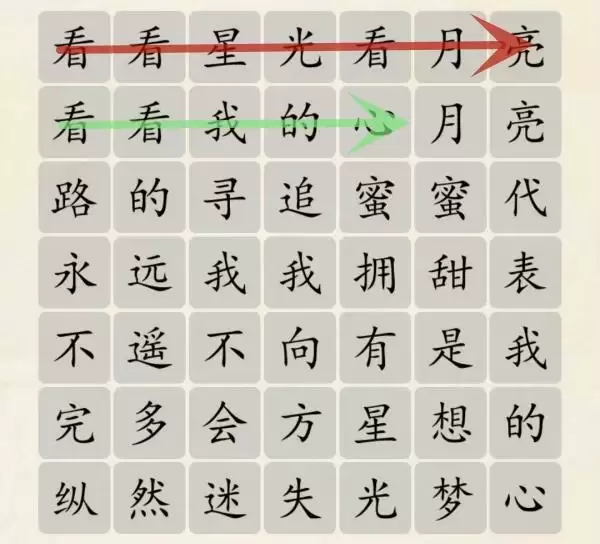 看看星光看月亮
看看我的心月亮
路的寻追蜜蜜代
永远我我拥甜表
不遥不向有是我
完多会方星想的
纵然迷失光梦心